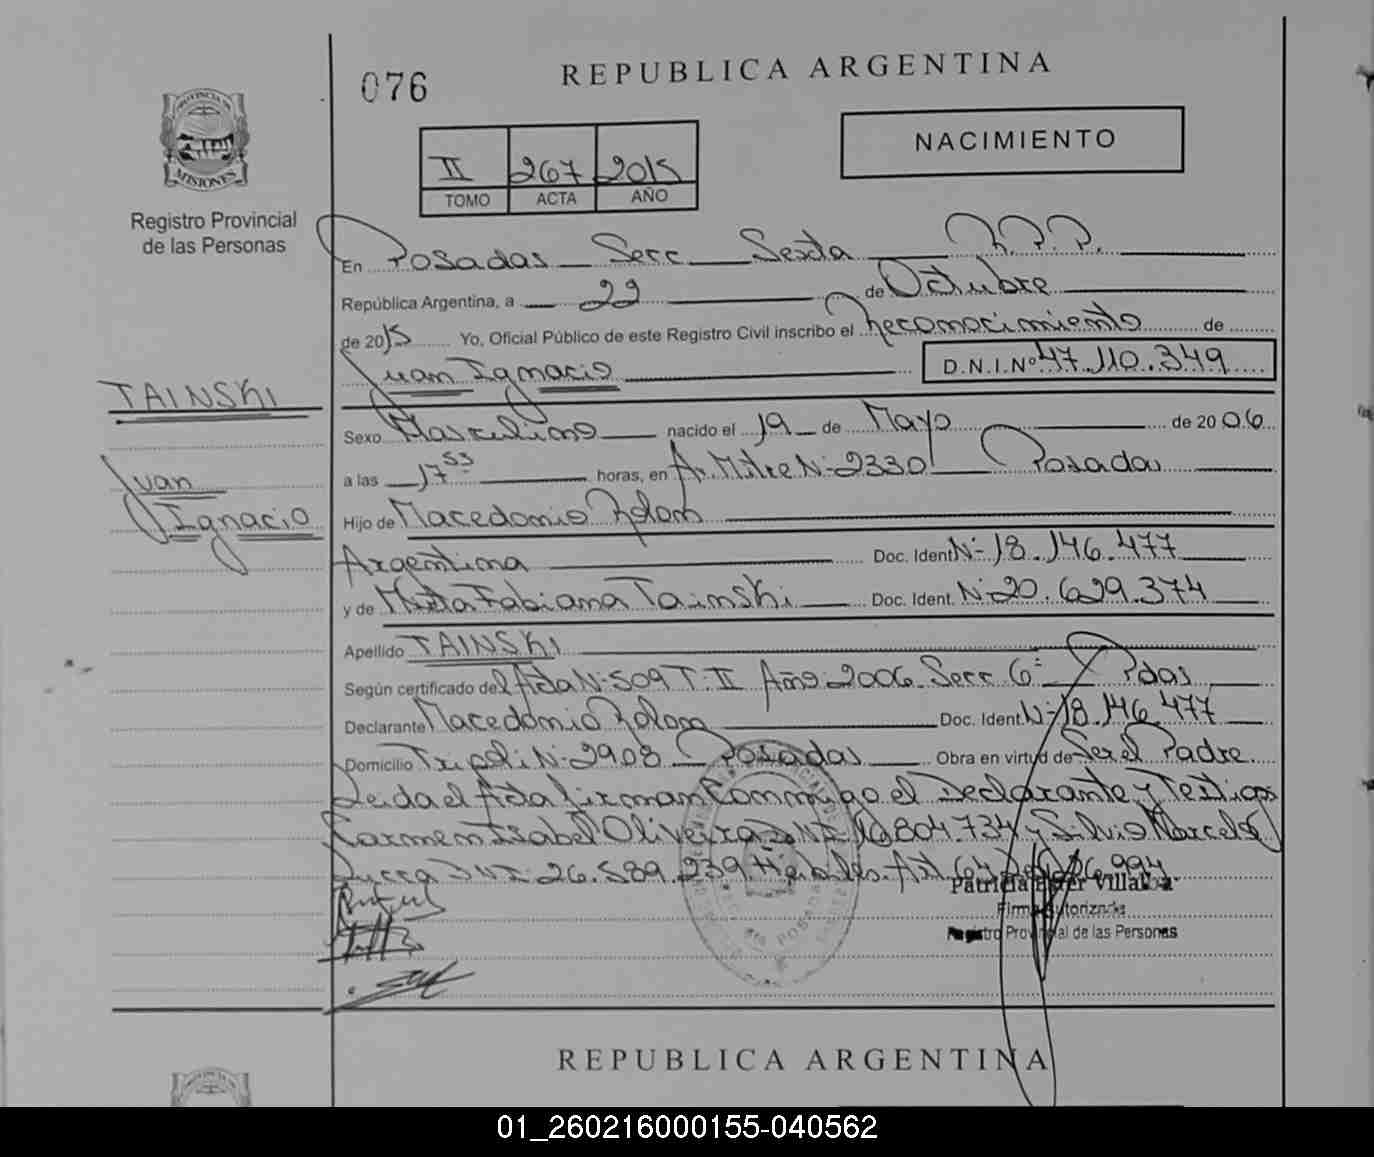 076
REPUBLICA ARGENTINA
NACIMIENTO
II 267 2015
TOMO ACTA AÑO
MISIONES
Registro Provincial
de las Personas
En Posadas Secc Sexta R.P.P.
República Argentina, a 22 de Octubre
de 2015 Yo, Oficial Público de este Registro Civil inscribo el Reconocimiento de
Juan Ignacio D.N.I.Nº 47.110.349
TAINSKI
Juan
Ignacio
Sexo Masculino nacido el 19 de Mayo de 2006
a las 17 53 horas, en Av. Mitre Nº 2330 Posadas
Hijo de Macedonio Rolon
Argentina Doc. Ident. Nº 18.146.477
y de Mirta Fabiana Tainski Doc. Ident. Nº 20.629.374
Apellido TAINSKI
Según certificado del Acta Nº 509 T. II Año 2006 Secc 6º Pdas
Declarante Macedonio Rolon Doc. Ident. Nº 18.146.477
Domicilio Tripoli Nº 2908 Posadas Obra en virtud de Ser el Padre
Leida el Acta firman conmigo el Declarante y Testigos
Carmen Isabel Oliveira DNI 16.804.734 y Silvio Marcelo
DNI 26.589.239 Hábiles. Art. 64 26.994
Patricia Ester Villalba
Firma Autorizada
Registro Provincial de las Personas
REPUBLICA ARGENTINA
01_260216000155-040562